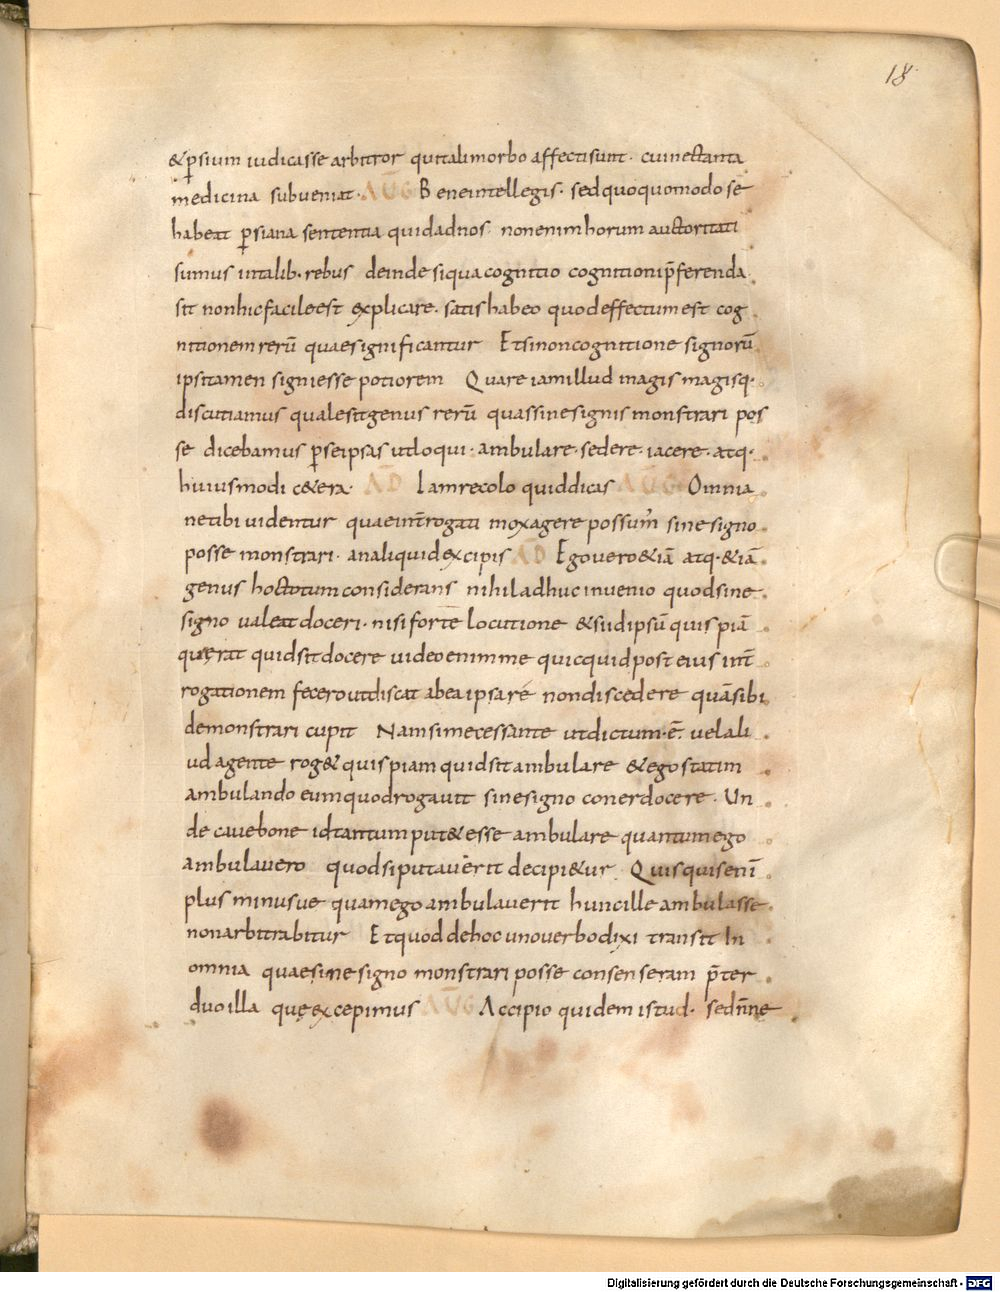 18
& p̱sium iudicasse arbitror qui tali morbo affecti sunt· cui nec tanta
medicina subueniat· AUG Bene intellegis· sed quoquo modo se
habeat p̱siana sententia quid ad nos· non enim horum auctoritati
sumus in talib· rebus deinde si qua cognitio cognitioni p̄ferenda
sit non hic facile est explicare· satis habeo quod effectum est cog
nitionem rerū quae significantur Etsi non cognitione signorū
ipsi tamen signi esse potiorem Quare iam illud magis magisq·
discutiamus quale sit genus rerū quas sine signis monstrari pos
se dicebamus p̱ se ipsas ut loqui· ambulare· sedere· iacere· atq·
huiusmodi c&era· AD Iam recolo quid dicas AUG Omnia
ne tibi uidentur quae int̄rogati mox agere possum̄ sine signo
posse monstrari· an aliquid excipis AD Ego uero &iā atq· &iā
genus hoc totum considerans nihil adhuc inuenio quod sine
signo ualeat doceri· nisi forte locutione & si id ipsū quispiā
querat quid sit docere uideo enim me quicquid post eius int̄
rogationem fecero ut discat ab ea ipsa re non discedere quā sibi
demonstrari cupit Nam si me cessante ut dictum· ē· uel ali
ud agente rog& quispiam quid sit ambulare & ego statim
ambulando eum quod rogauit sine signo coner docere· Un
de cauebo ne id tantum put& esse ambulare quantum ego
ambulauero quod si putauerit decipi&ur· Quisquis enī
plus minusue quam ego ambulauerit hunc ille ambulasse
non arbitrabitur Et quod de hoc uno uerbo dixi transit In
omnia quae sine signo monstrari posse consenseram p̄ter
duo illa quę excepimus AUG Accipio quidem istud· sed nn̄e
Digitalisierung gefördert durch die Deutsche Forschungsgemeinschaft - DFG